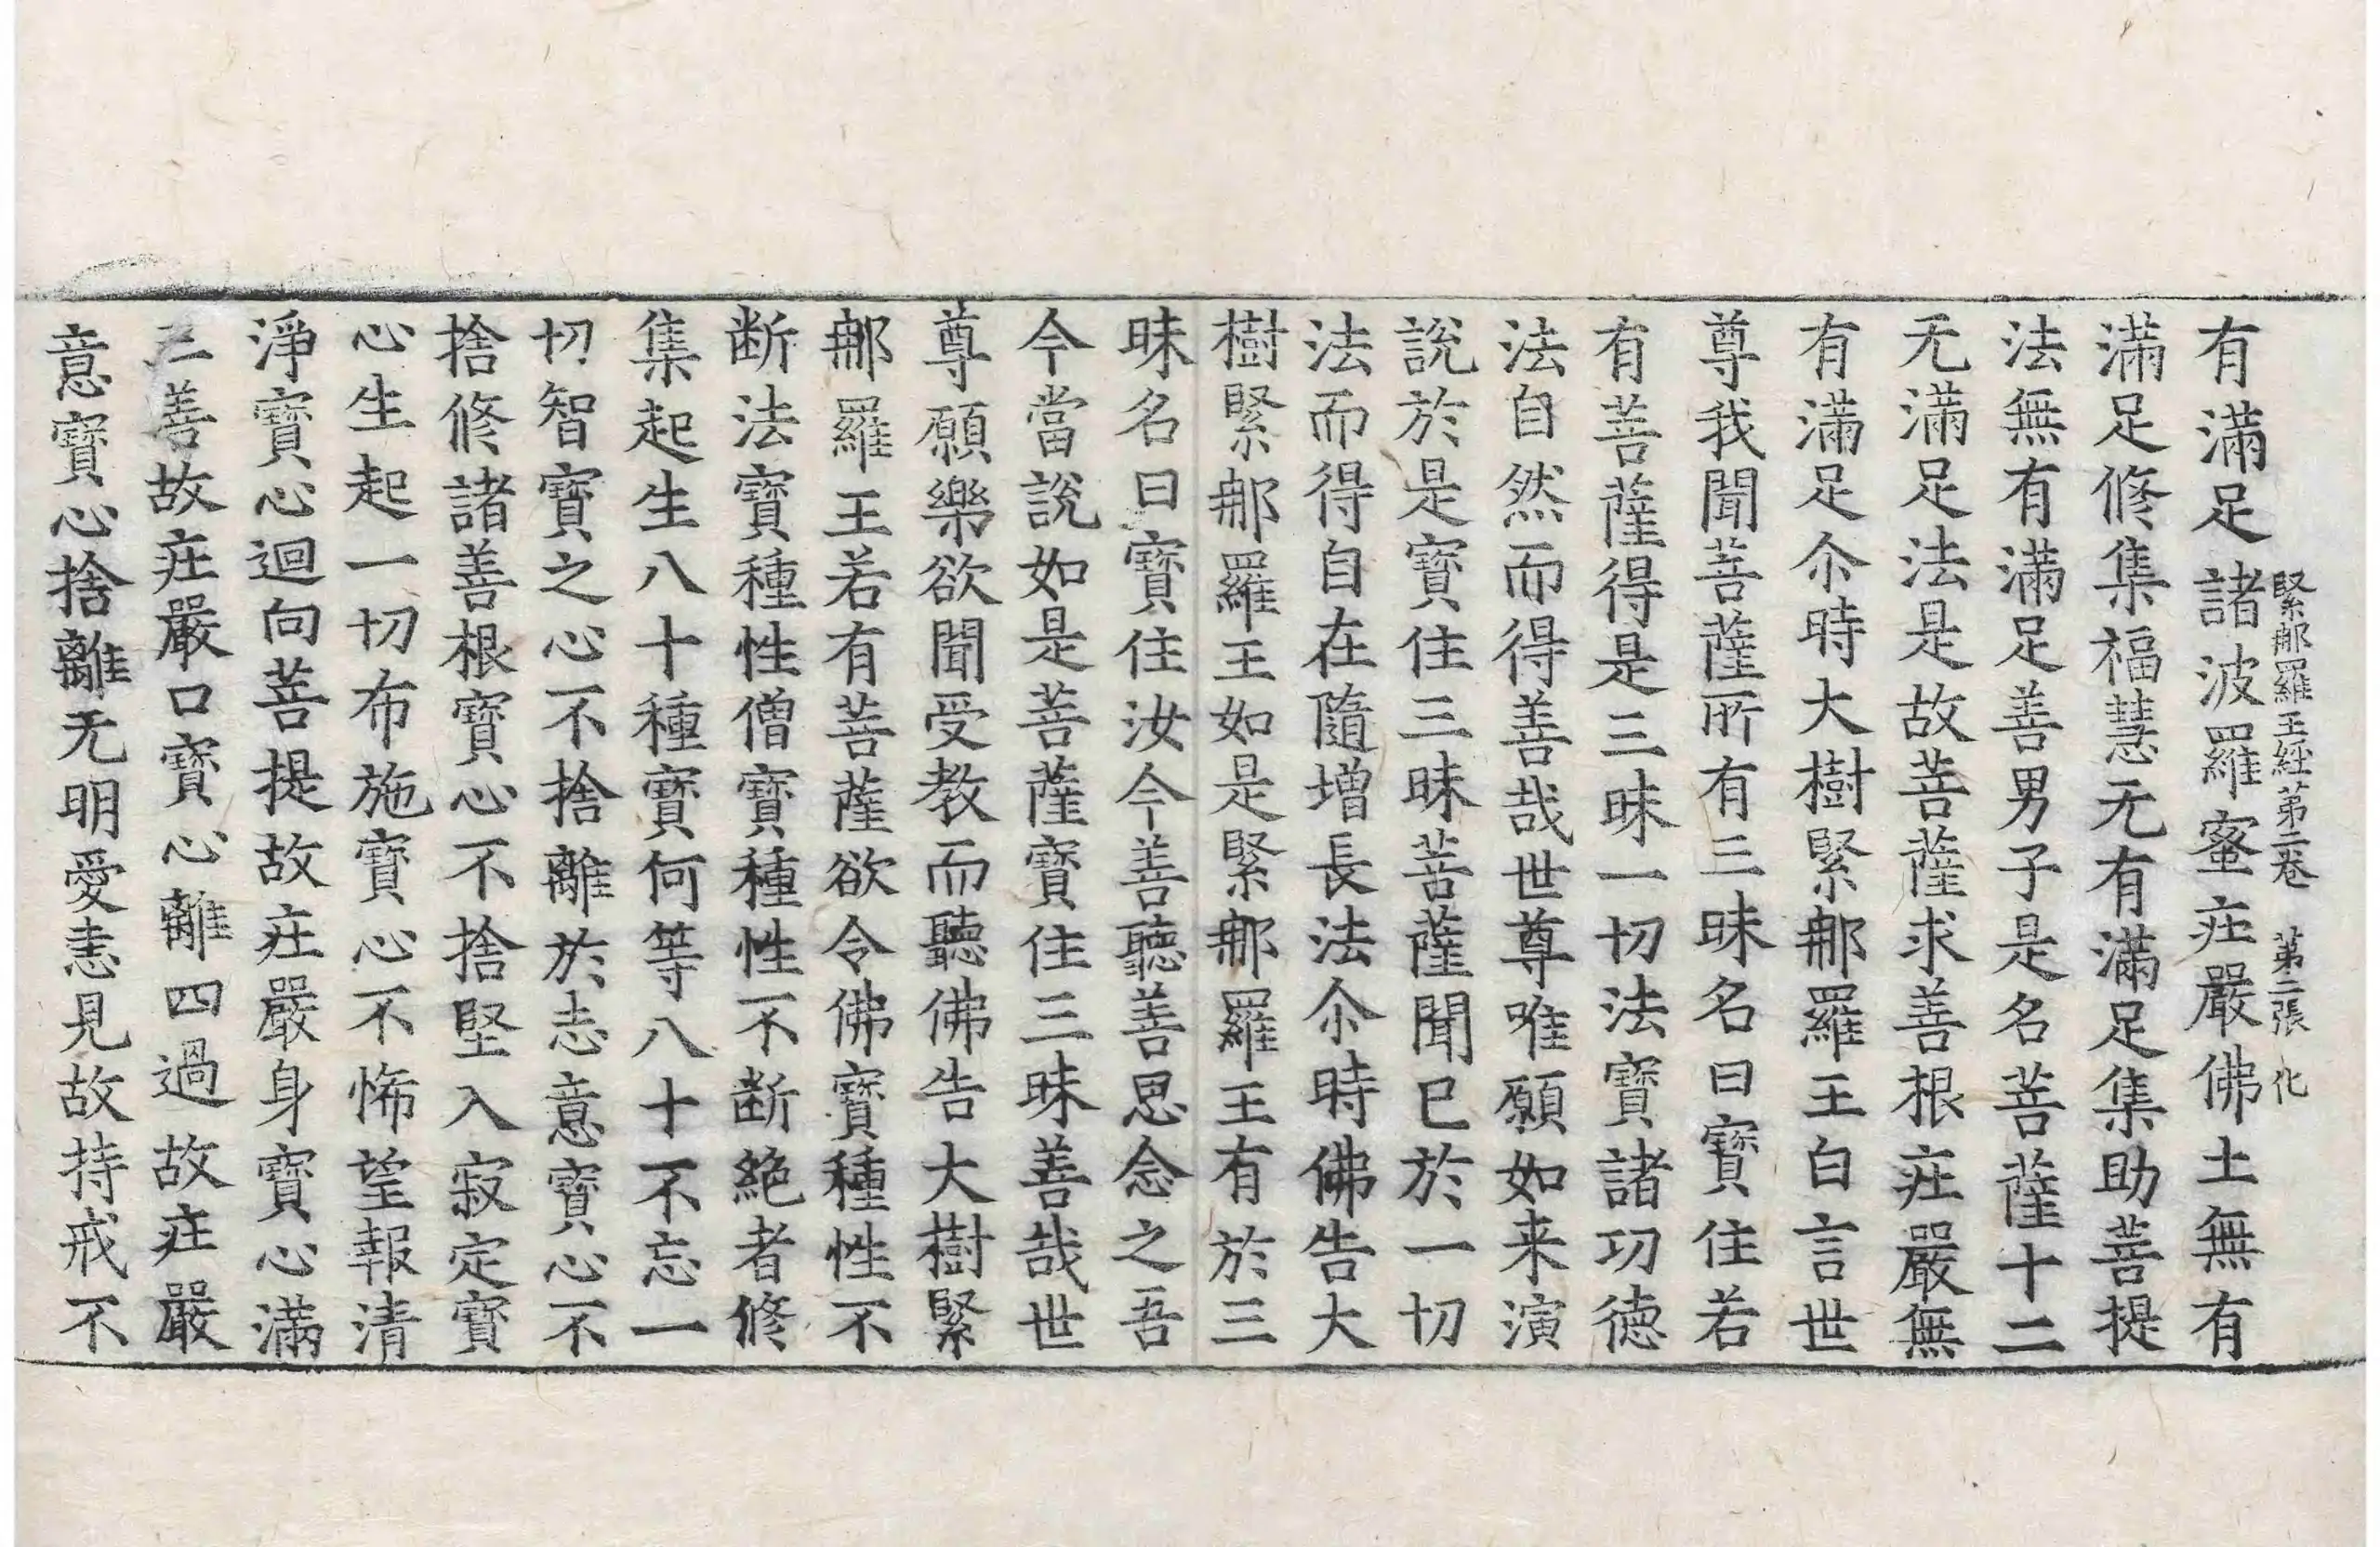 緊那羅王經第二卷　第二張　化
有滿足諸波羅蜜庄嚴佛土無有
滿足修集福慧无有滿足集助菩提
法無有滿足善男子是名菩薩十二
无滿足法是故菩薩求善根庄嚴無
有滿足尒時大樹緊那羅王白言世
尊我聞菩薩所有三昧名曰寶住若
有菩薩得是三昧一切法寶諸功德
法自然而得善哉世尊唯願如来演
說於是寶住三昧菩薩聞已於一切
法而得自在隨增長法尒時佛告大
樹緊那羅王如是緊那羅王有於三
昧名曰寶住汝今善聽善思念之吾
今當說如是菩薩寶住三昧善哉世
尊願樂欲聞受教而聽佛告大樹緊
那羅王若有菩薩欲令佛寶種性不
断法寶種性僧寶種性不断絕者修
集起生八十種寶何等八十不忘一
切智寶之心不捨離於志意寶心不
捨修諸善根寶心不捨堅入寂定寶
心生起一切布施寶心不悕望報清
淨寶心迴向菩提故庄嚴身寶心滿
三善故庄嚴口寶心離四過故庄嚴
意寶心捨離无明愛恚見故持戒不